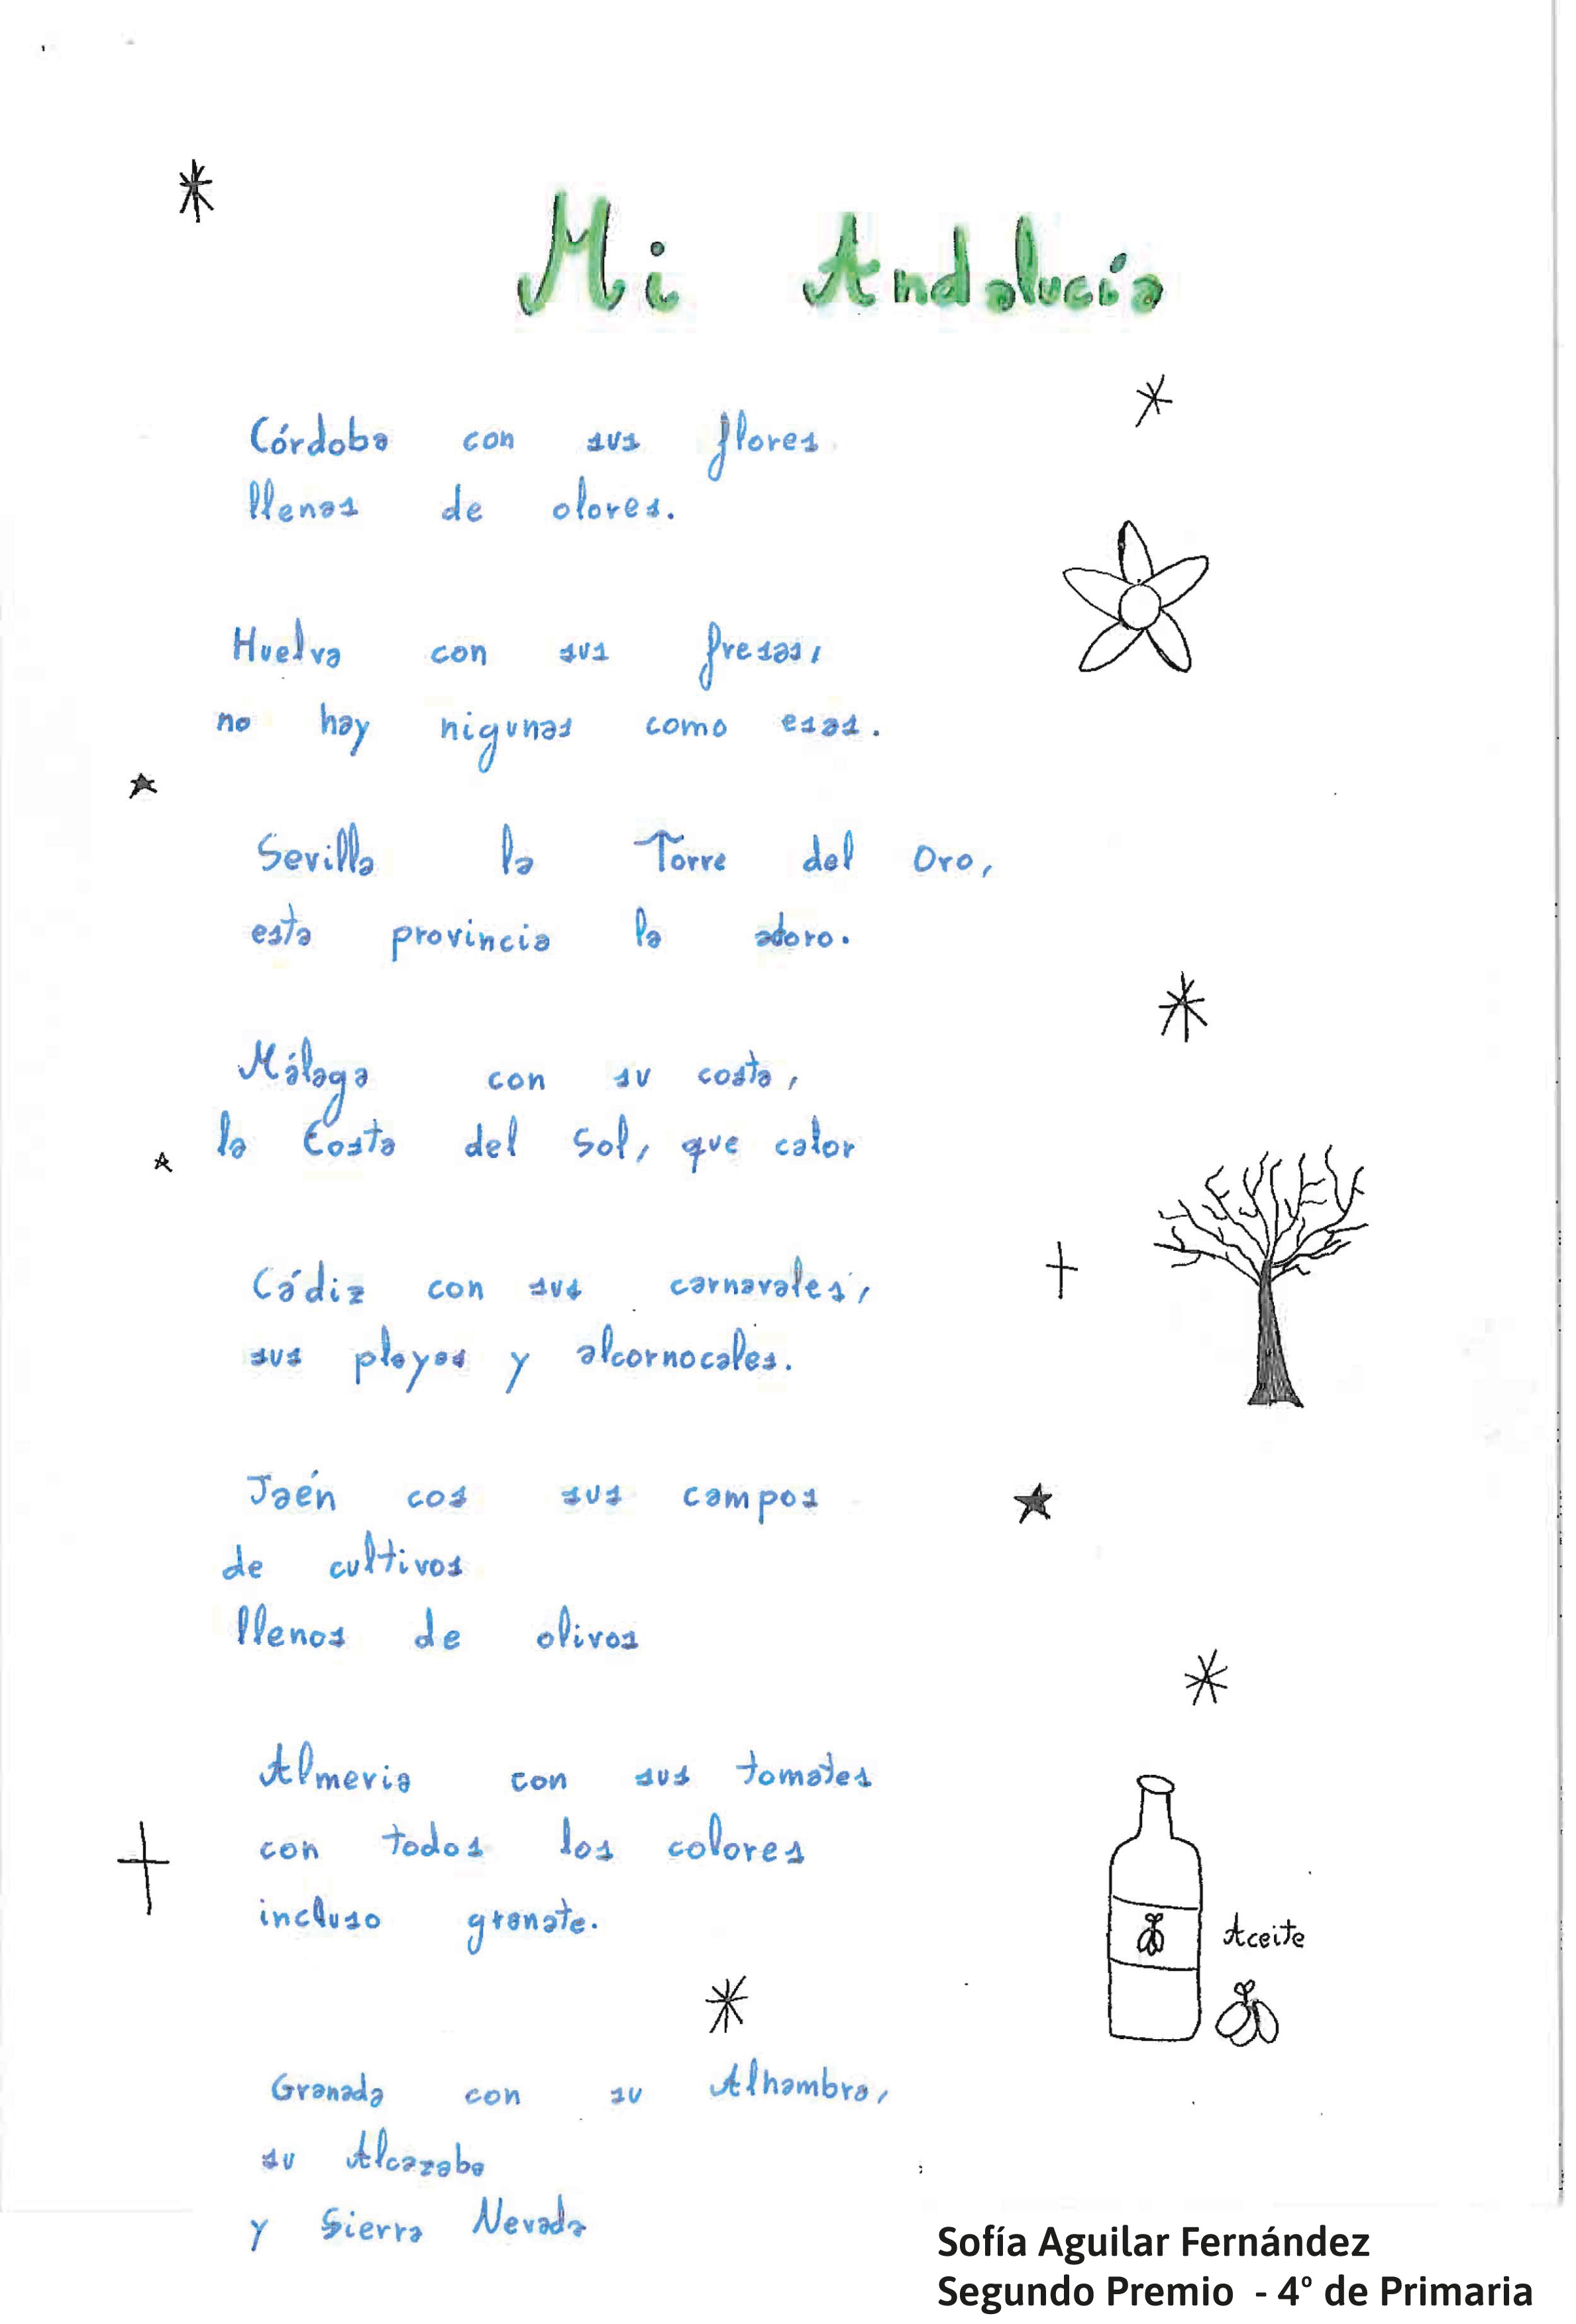 Mi Andalucía
Córdoba con sus flores
llenas de olores.
Huelva con sus fresas,
no hay nigunas como esas.
Sevilla la Torre del Oro,
esta provincia la adoro.
Málaga con su costa,
la Costa del Sol, que calor
Cádiz con sus carnavales,
sus playas y alcornocales.
Jaén cos sus campos
de cultivos
llenos de olivos
Almeria con sus tomates
con todos los colores
incluso granate.
Aceite
Granada con su Alhambra,
su Alcazaba
y Sierra Nevada
Sofía Aguilar Fernández
Segundo Premio - 4º de Primaria